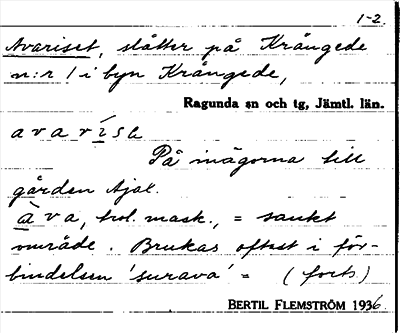 1-2.
Avariset, slåtter på Krångede
n:r 1 i byn Krångede,
Ragunda sn och tg, Jämtl. län.
a v a r í s e
På inägorna till
gården Ajal.
à v a, trol. mask., = sankt
område. Brukas oftast i för-
bindelsen 'surava' = (forts)
BERTIL FLEMSTRÖM 1936.